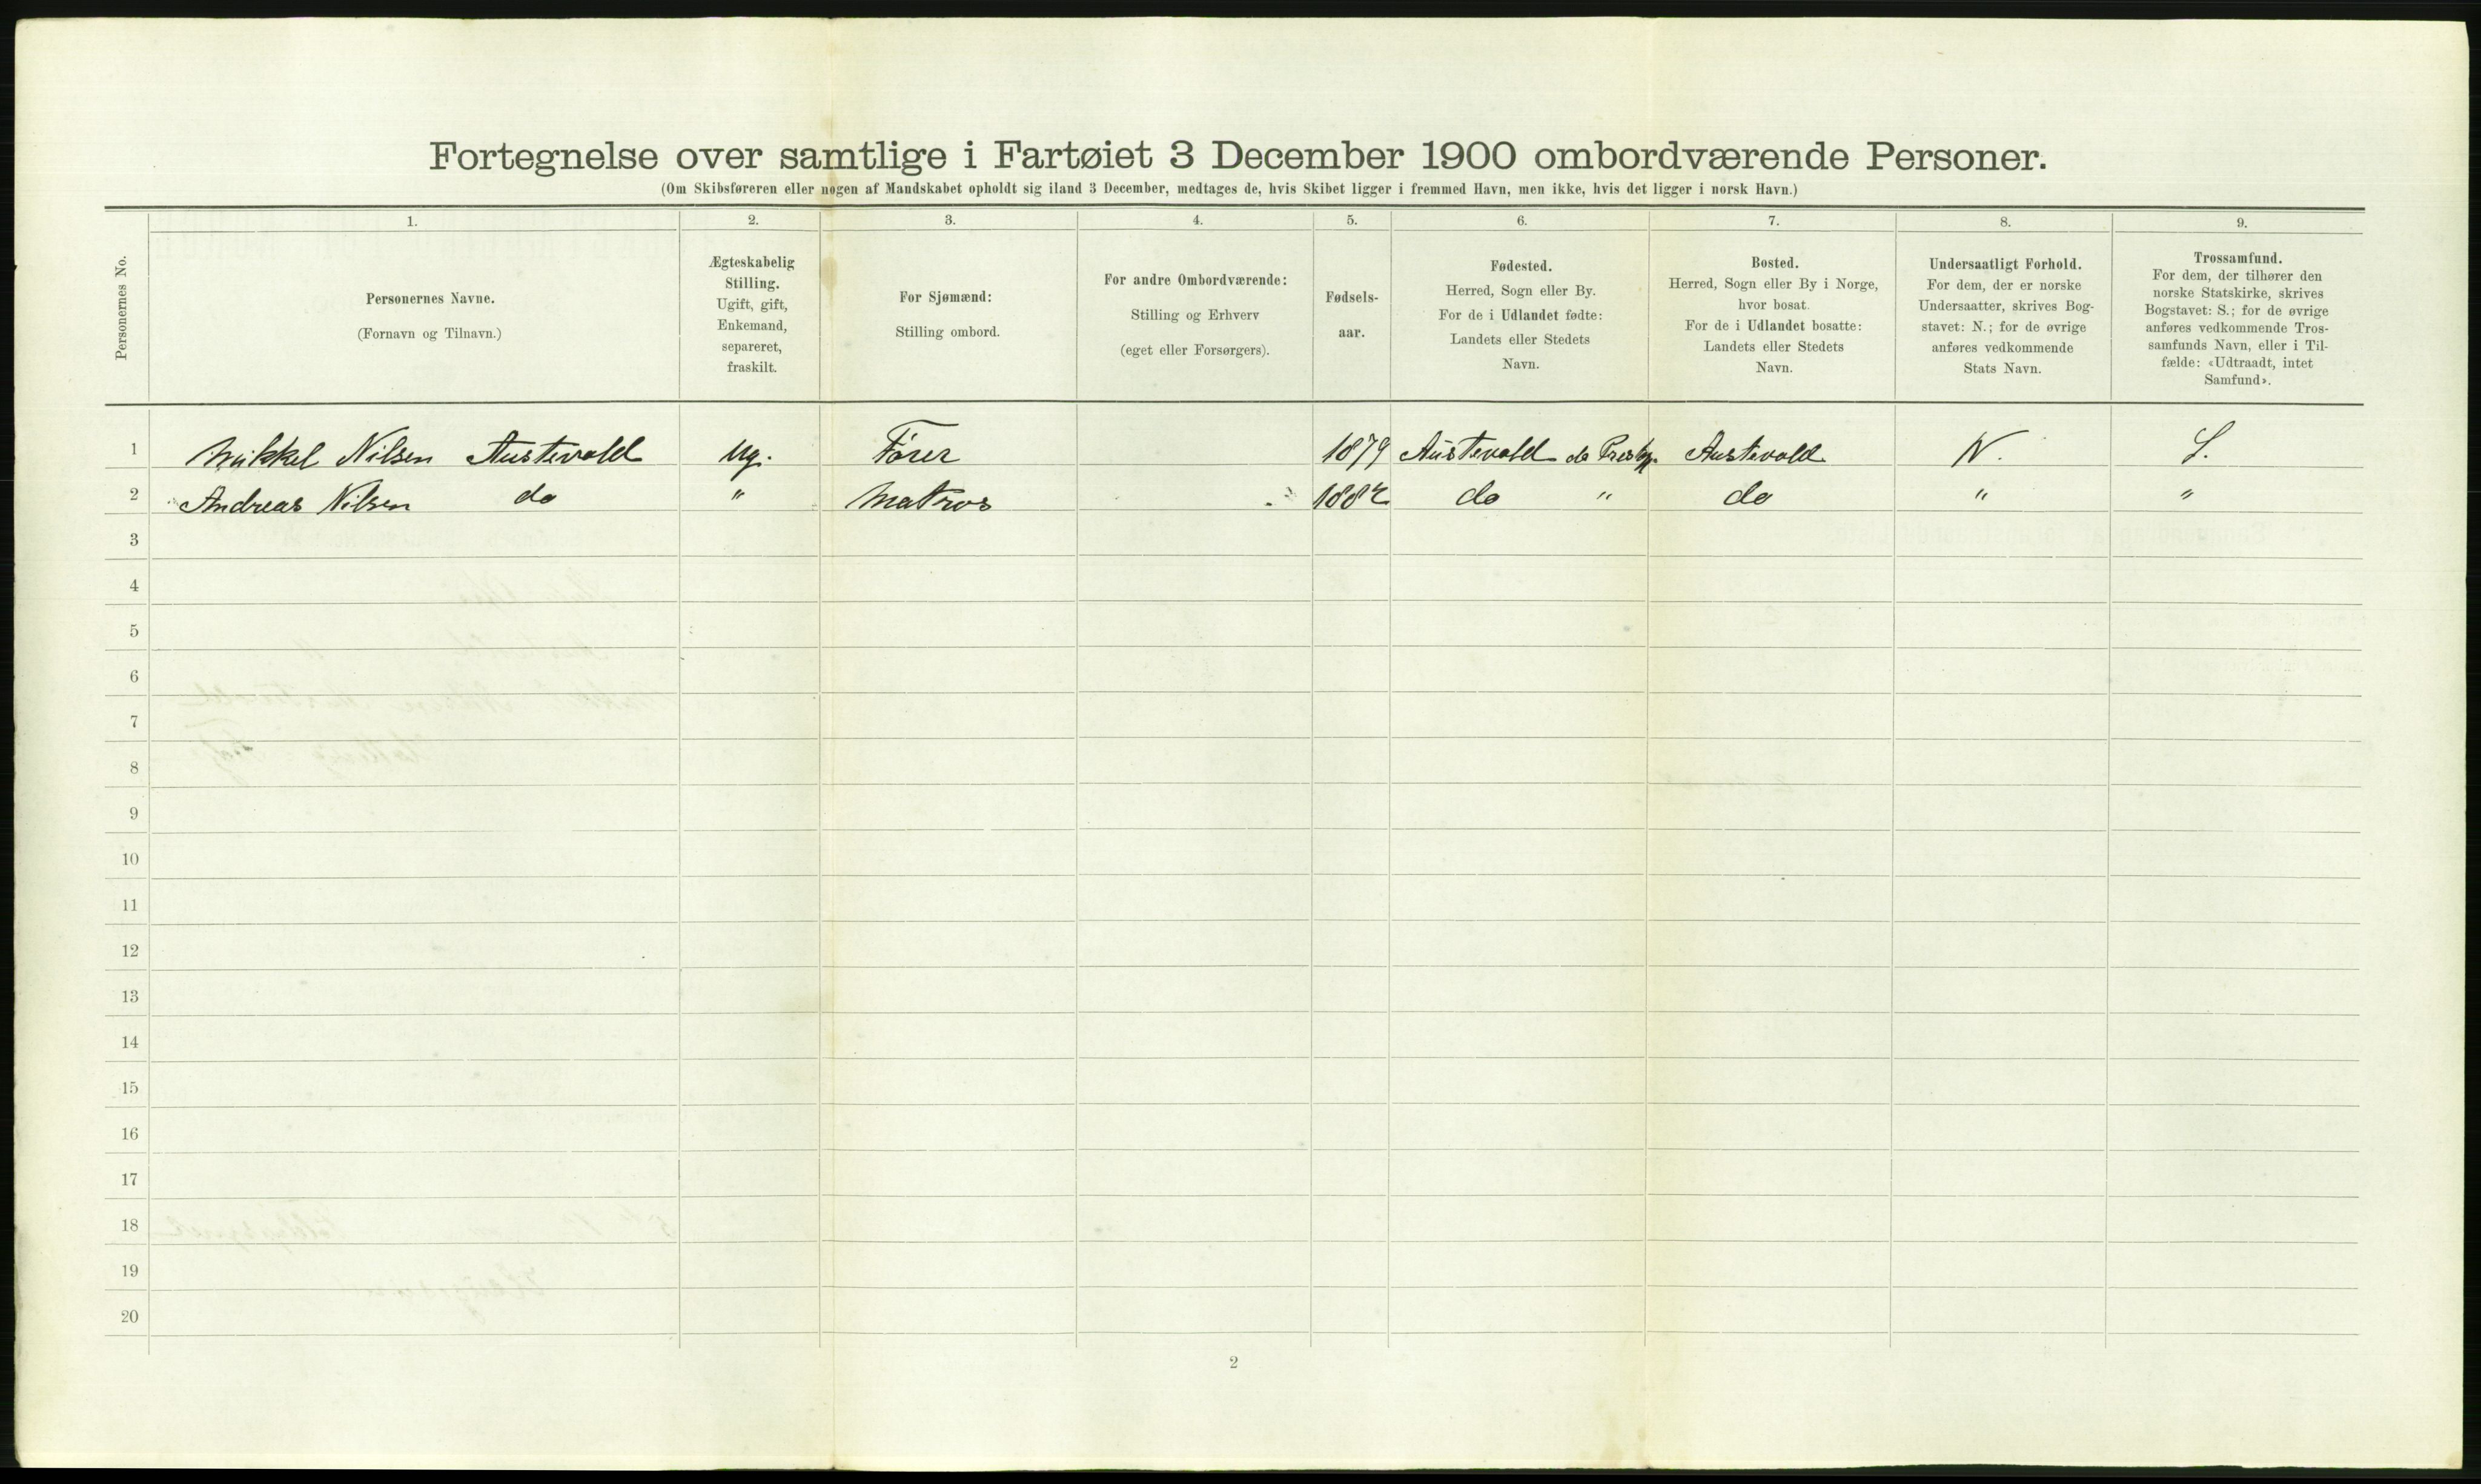 Fortegnelse over samtlige i Fartøiet 3 December 1900 ombordværende Personer.
(Om Skibsføreren eller nogen af Mandskabet opholdt sig iland 3 December, medtages de, hvis Skibet ligger i fremmed Havn, men ikke, hvis det ligger i norsk Havn.)
Personernes No.
1.
Personernes Navne.
(Fornavn og Tilnavn.)
2.
Ægteskabelig
Stilling.
Ugift, gift,
Enkemand,
separeret,
fraskilt.
3.
For Sjømænd:
Stilling ombord.
4.
For andre Ombordværende:
Stilling og Erhverv
(eget eller Forsørgers).
5.
Fødsels-
aar.
6.
Fødested.
Herred, Sogn eller By.
For de i Udlandet fødte:
Landets eller Stedets
Navn.
7.
Bosted.
Herred, Sogn eller By i Norge,
hvor bosat.
For de i Udlandet bosatte:
Landets eller Stedets
Navn.
8.
Undersaatligt Forhold.
For dem, der er norske
Undersaatter, skrives Bog-
stavet: N.; for de øvrige
anføres vedkommende
Stats Navn.
9.
Trossamfund.
For dem, der tilhører den
norske Statskirke, skrives
Bogstavet: S.; for de øvrige
anføres vedkommende Tros-
samfunds Navn, eller i Til-
fælde: «Udtraadt, intet
Samfund».
1 Mikkel Nilsen Austevold Ug. Fører 1879 Austevold do Prestgj. Austevold N. S.
2 Andreas Nilsen do " Matros 1882 do " do " "
3
4
5
6
7
8
9
10
11
12
13
14
15
16
17
18
19
20
2